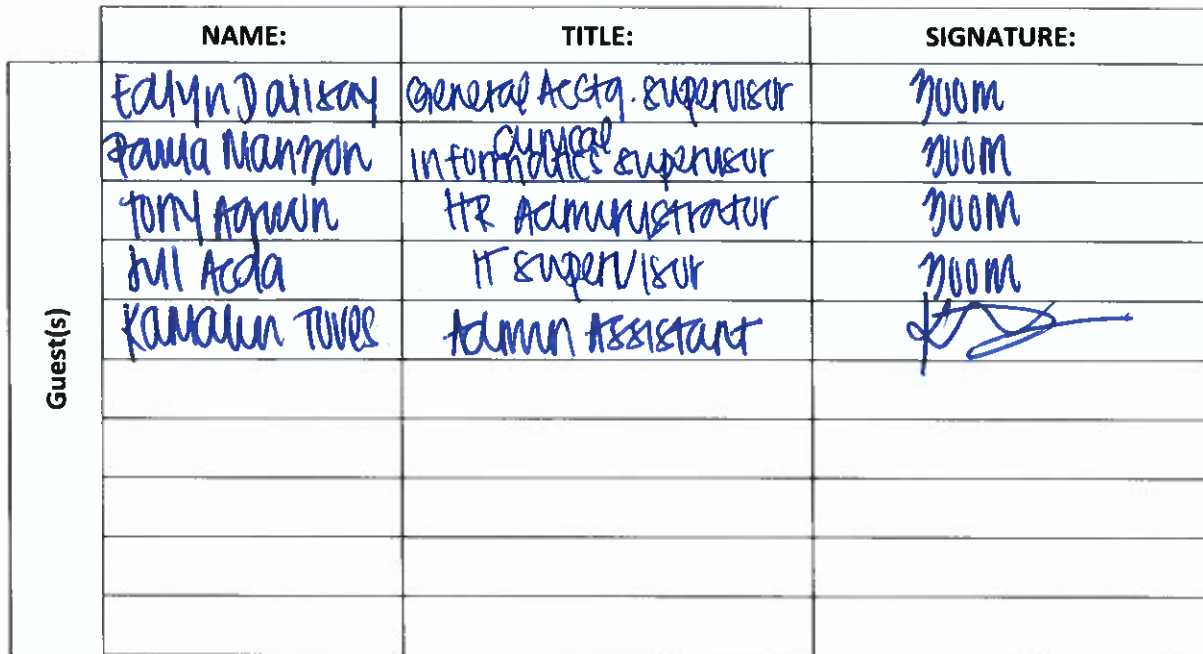 NAME: TITLE: SIGNATURE:
Guest(s)
Edlyn Dalisay General Acctg. Supervisor zoom
Paula Manzon Clinical Informatics Supervisor zoom
Tony Aguon HR Administrator zoom
Jull Acda IT Supervisor zoom
Kamalin Tuves Admin Assistant